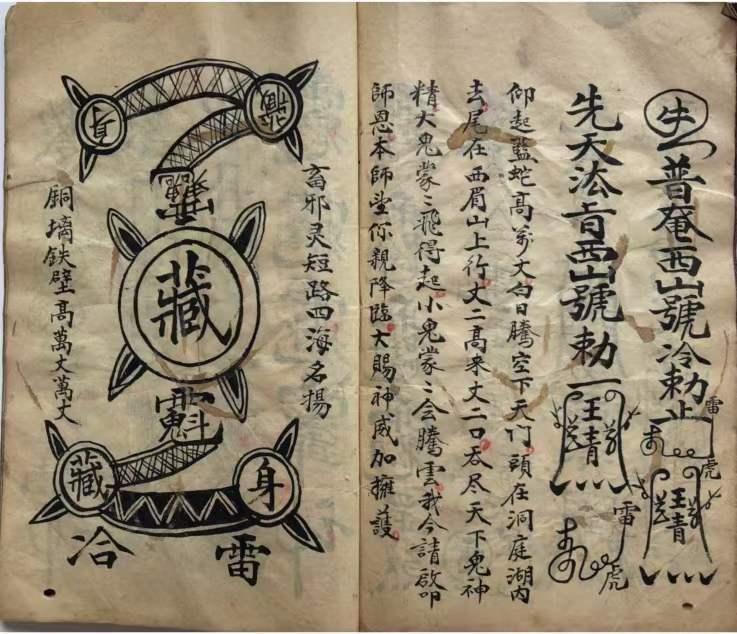 生普奄西山號冷勅止
雷
虎
王青
先天法旨西山號勅一
王青
雷
虎
仰起藍蛇高萬丈白日騰空下天门頭在洞庭湖内
去尾在西眉山上行丈二高来丈二口吞尽天下鬼神
精大鬼蒙〻飛得起小鬼蒙〻会騰雲我今請啟叩
師恩本師望你親降臨大賜神威加擁護
畜邪灵短路四海名揚
藏
身
藏
身
藏
雷
冶
銅墻鉄壁高萬丈萬丈